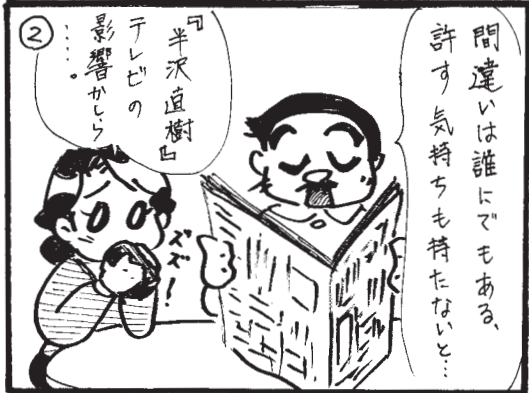 間違いは誰にでもある、
許す気持ちも持たないと…
②
『半沢直樹』
テレビの
影響かしら
……。
ズズ!